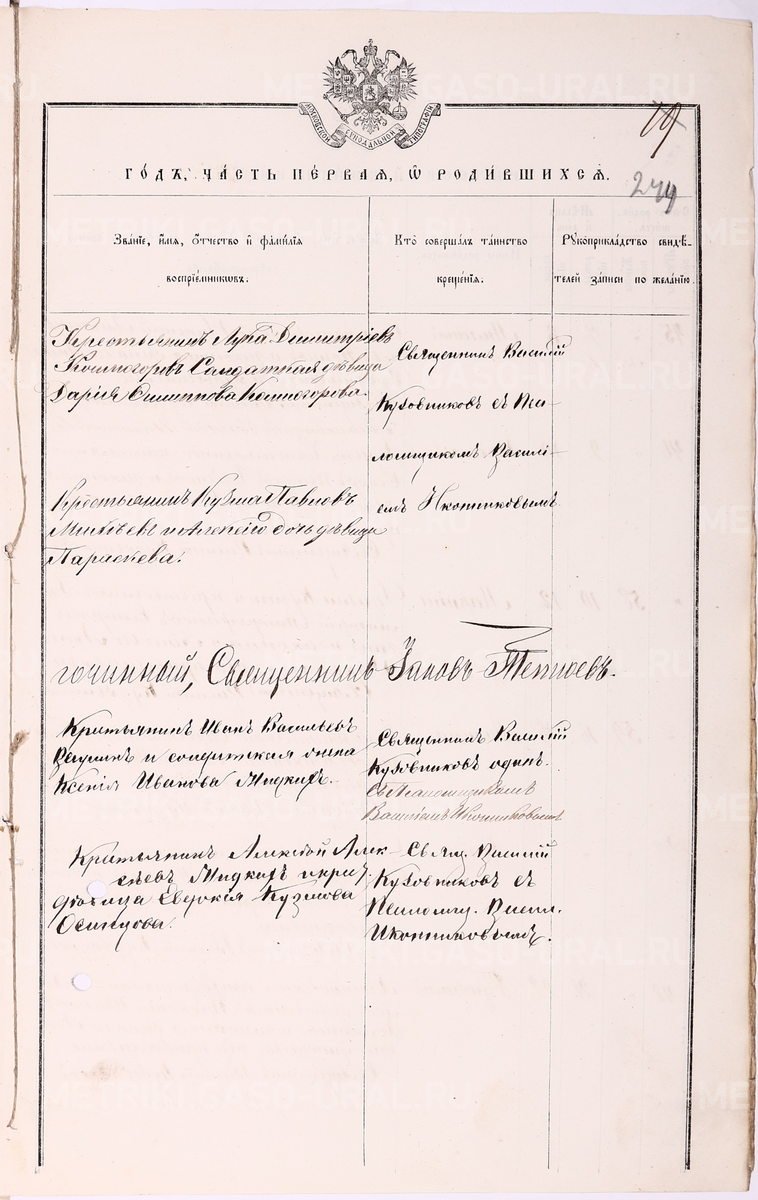 МОСКОВСКОЙ СѴНОДАЛЬНОЙ ТИПОГРАФІИ
19
244
ГО́ДЪ, ЧА́СТЬ ПЕ́РВАЯ, Ѡ҆ РОДИ́ВШИХСЯ.
Зва́нїе, и҆́мя, ѻ҆́тчество и҆ фамі́лїя
воспрїе́мникѡвъ.
Кто̀ соверша́лъ та́инство
креще́нїя.
Рꙋкоприкла́дство свидѣ́-
телей за́писи по жела́нїю.
Крестьянинъ Лука Димитріевъ
Солдатская дѣвица
Дарія Комногорова.
Священникъ Василій
Кузовниковъ съ Пса-
ломщикомъ Василі-
емъ Иконниковымъ
Крестьянинъ Кузма Павловъ
и дочь дѣвица
Параскева.
гочинный, Священникъ Іаковъ
Крестьянинъ Иванъ Васильевъ
и солдатская жена
Ксенія Иванова Жидкихъ.
Священникъ Василій
Кузовниковъ одинъ.
Съ Псаломщикомъ
Василіемъ Иконниковымъ
Крестьянинъ Алексѣй Алек-
сѣевъ Жидкихъ и крест.
дѣвица Евдокія Кузмова
Осинцова.
Свящ. Василій
Кузовниковъ съ
Псаломщ. Васил.
Иконниковымъ.
METRIKI.GASO-URAL.RU